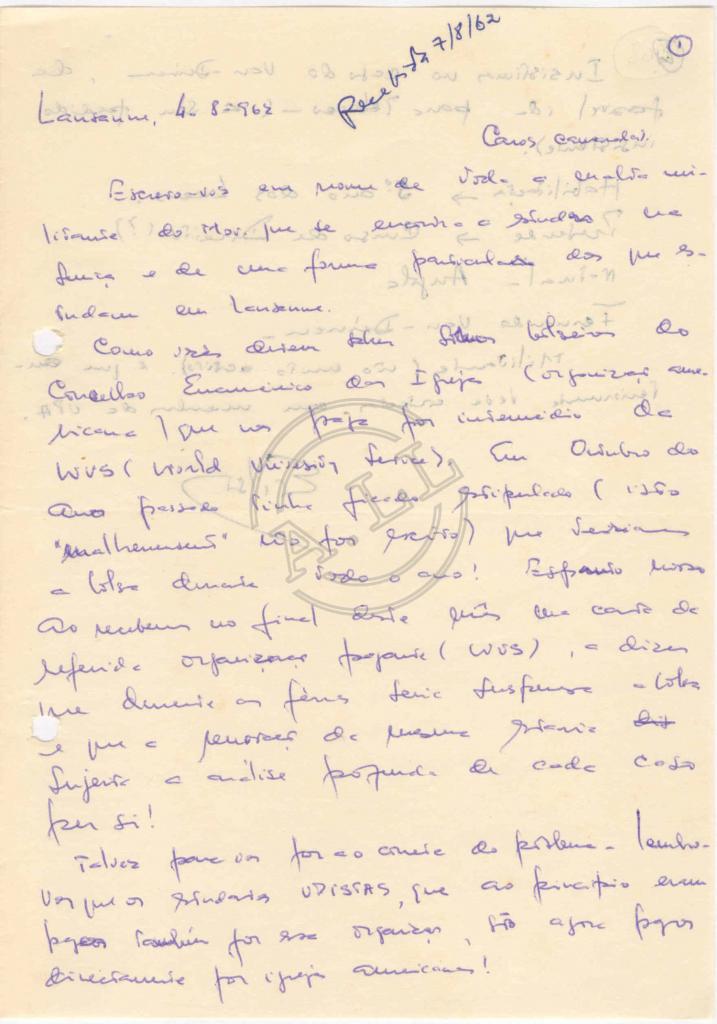 1
recebida 7/8/62
Lausanne, 4-8-962
Caros camaradas.
Escrevo-vos em nome de toda a malta mi-
litante do Mov. que se encontra a estudar na
Suiça e de uma forma particular dos que es-
tudam em Lausanne.
Como vocês devem saber somos bolseiros do
Concelho Ecuménico das Igrejas (organização ame-
ricana) que nos paga por intermédio da
WUS (World University Service). Em Outubro do
ano passado tinha ficado estipulado (isto
"malheureusement" não foi escrito) que teriamos
a bolsa durante todo o ano! Espanto nosso
ao recebermos no final deste mês uma carta da
referida organização pagante (WUS), a dizer
que durante as férias seria suspensa a bolsa
e que a renovação da mesma estaria
sujeita a análise profunda de cada caso
per si!
Talvez para vos pôr ao corrente do problema - lembro-
vos que os estudantes UPISTAS, que ao principio eram
pagos também por essa organização, são agora pagos
directamente por igrejas americanas!
ALL